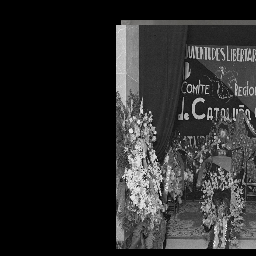 JUVENTUDES LIBERTAR
COMITE REGION
DE CATALUÑA